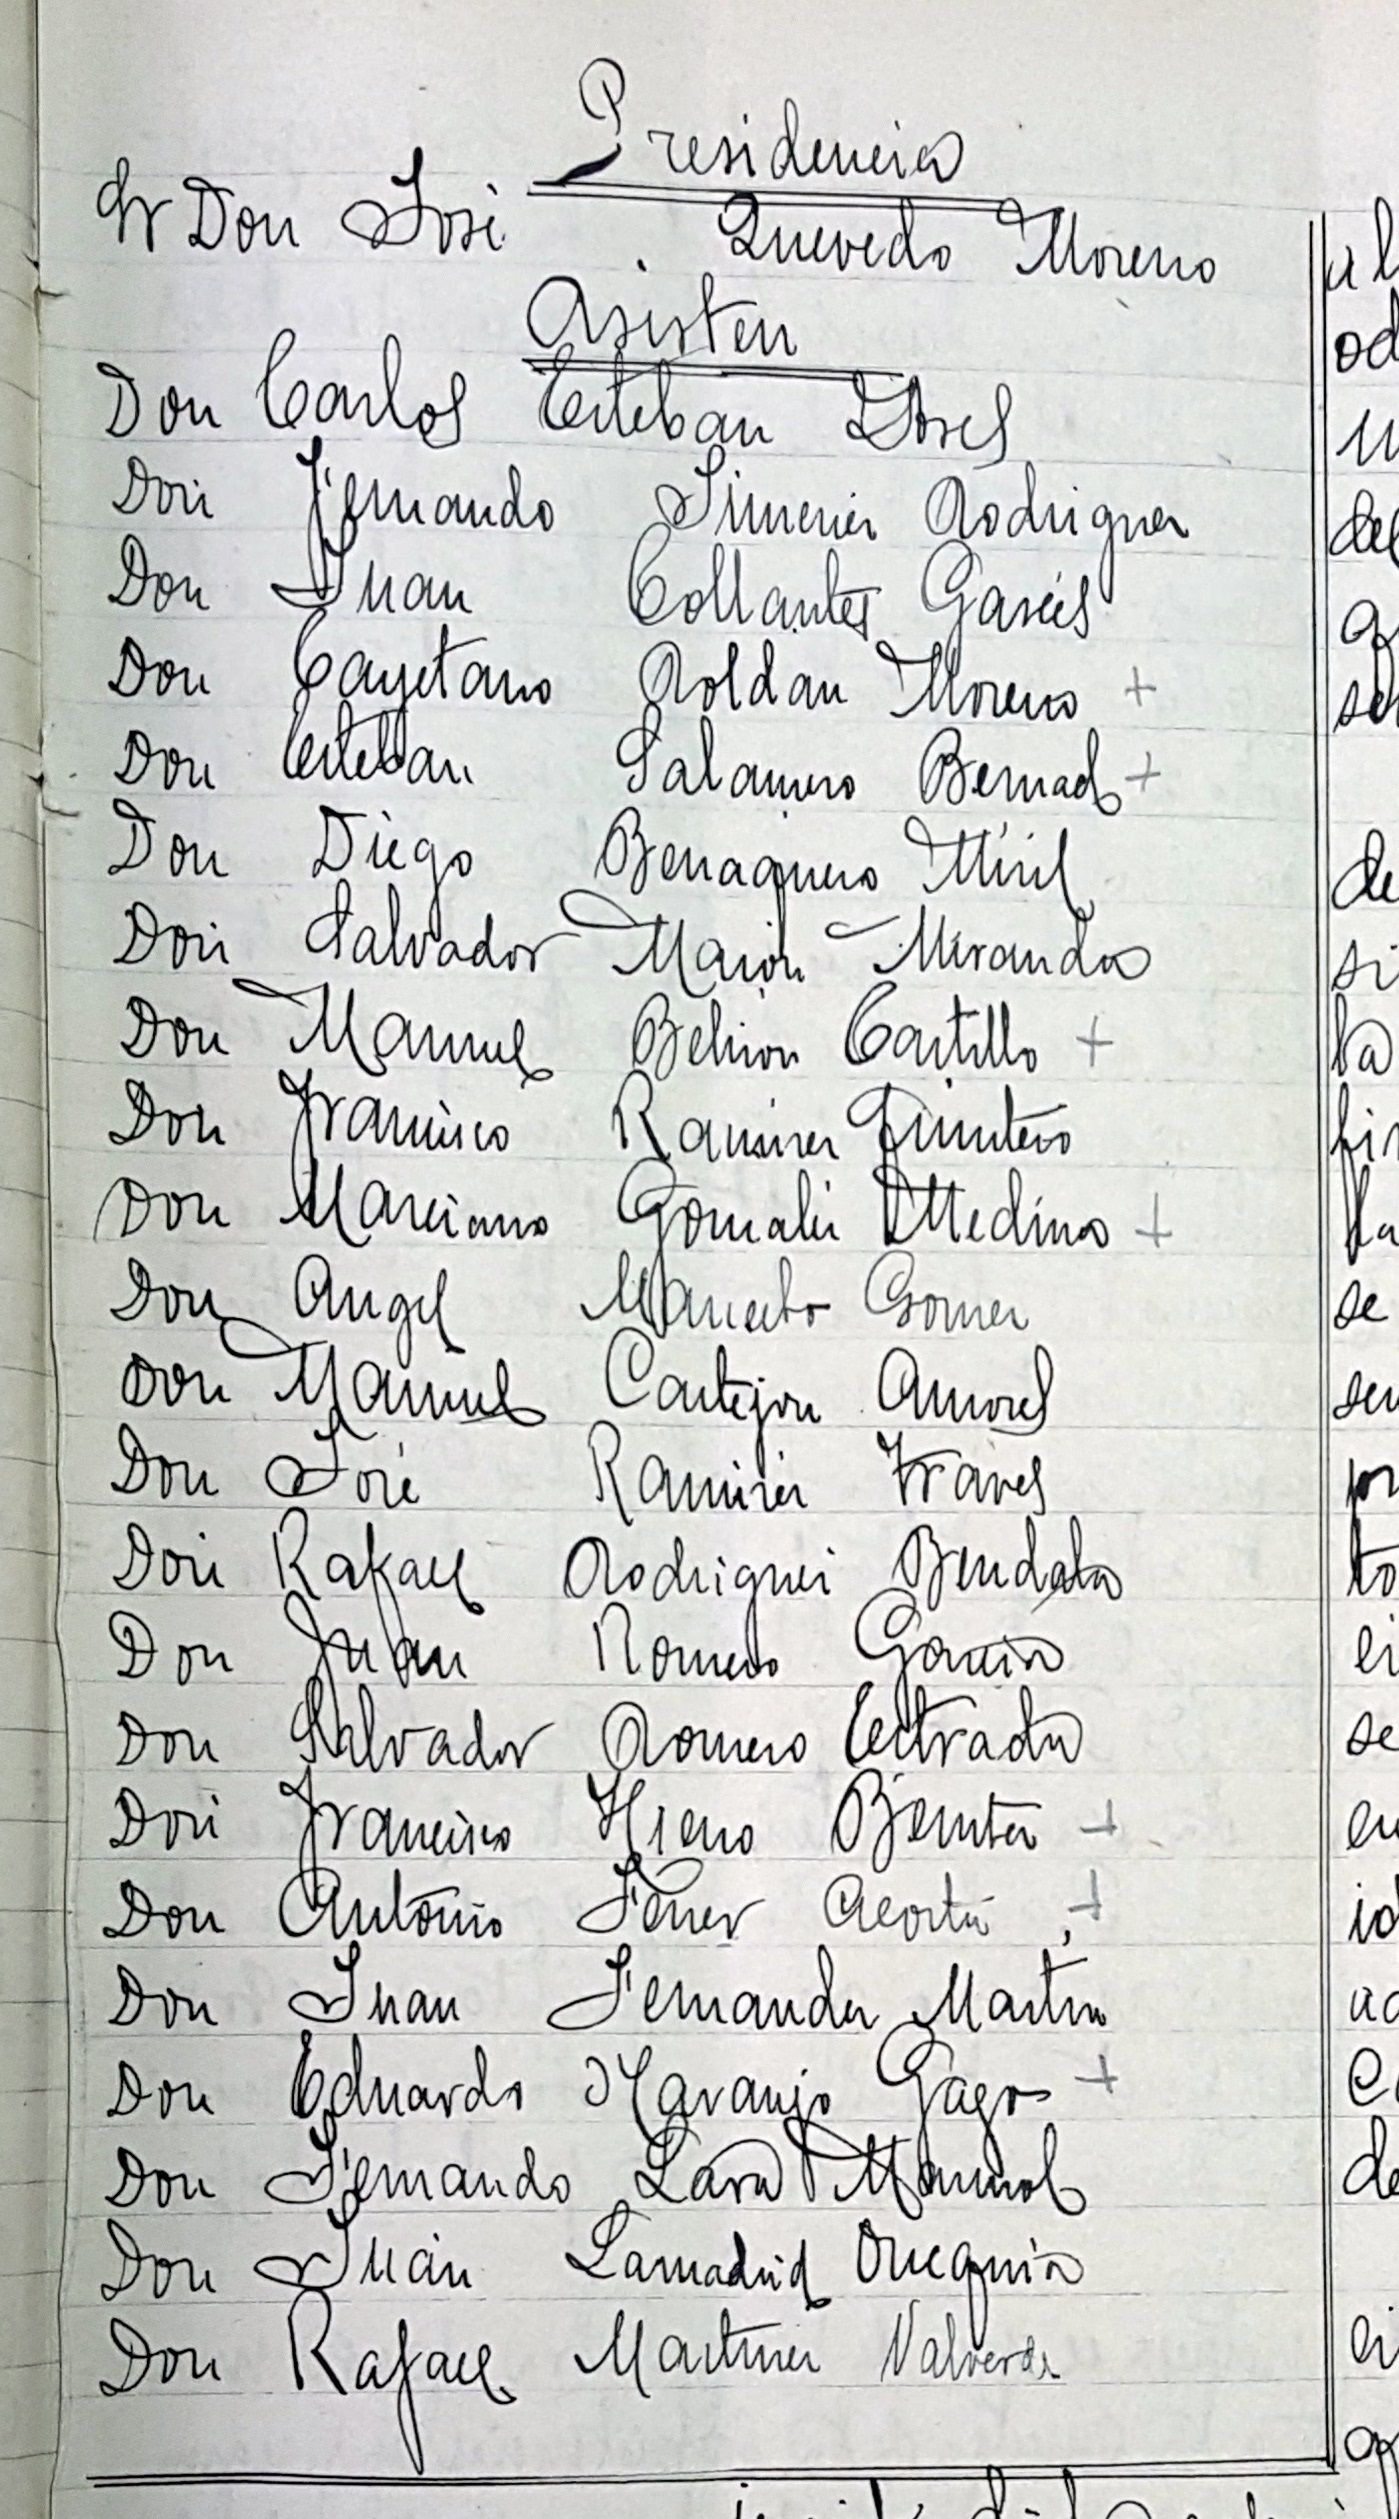 Presidencia
Sr Don José Quevedo Moreno
Asisten
Don Carlos Esteban
Don Fernando Jimenez Rodriguez
Don Juan Collantes Garcés
Don Cayetano Roldan Moreno +
Don Esteban Salamero Bernad +
Don Diego Benaquero
Don Salvador Miranda
Don Manuel Castillo +
Don Francisco Ramirez Quintero
Don Marciano Gonzalez Medina +
Don Angel Mancebo Gomez
Don Manuel Castejon Amores
Don José Ramirez Traves
Don Rafael Rodriguez Bendala
Don Juan Romero Garcia
Don Salvador Romero Estrada
Don Francisco Benitez +
Don Antonio Ferrer Acosta +
Don Juan Fernandez Martin
Don Eduardo Naranjo Gago +
Don Fernando Lara
Don Juan Lamadrid Orequia
Don Rafael Martinez Valverde